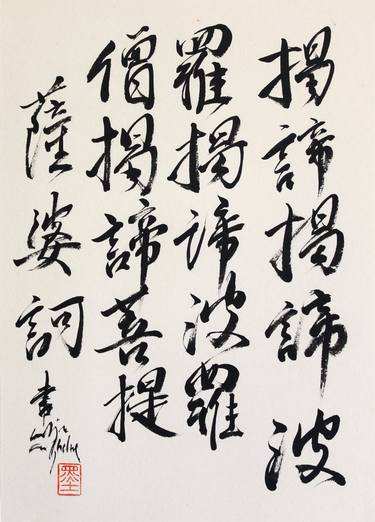 揭諦揭諦波
羅揭諦波羅
僧揭諦菩提
薩婆訶
書
墨